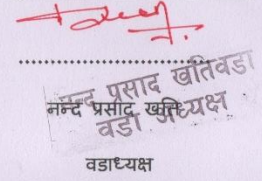 ....................................
नन्द प्रसाद खतिवडा
वडा अध्यक्ष
नन्द प्रसाद खति
वडाध्यक्ष